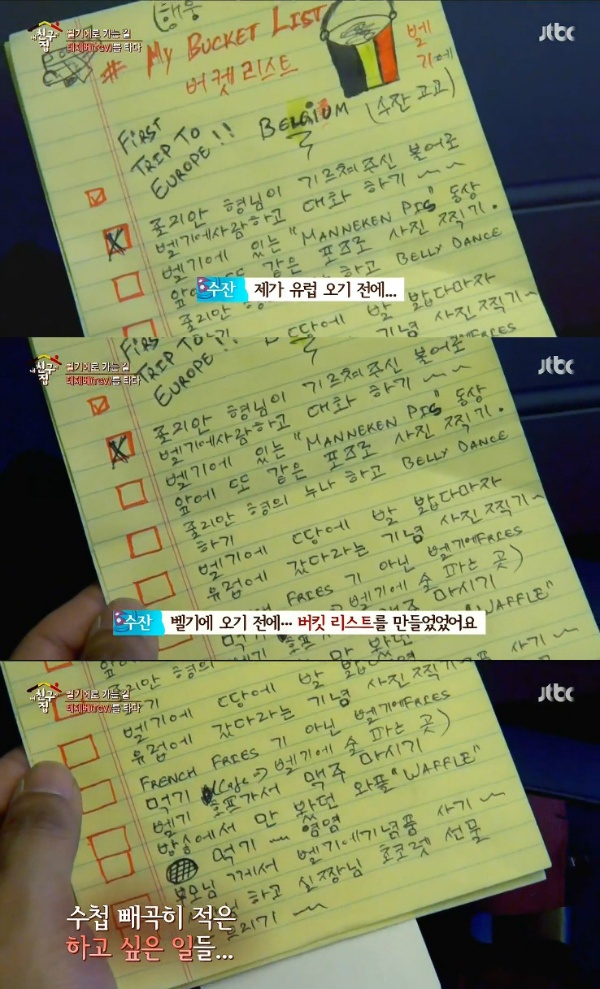 내 친구집
벨기에로 가는 길
떼제베(TGV)를 타다
jtbc
# My BUCKET LIST
버켓 리스트
벨기에
FIRST
TRIP TO
EUROPE!! BELGIUM (수잔 고고)
줄리안 형님이 기르쳐주신 불어로
벨기에사람하고 대화 하기 ~~
벨기에 있는 "MANNEKEN PIS" 동상
앞에 또 같은 포즈로 사진 찍기.
하고 BELLY DANCE
수잔 제가 유럽 오기 전에...
내 친구집
벨기에로 가는 길
떼제베(TGV)를 타다
jtbc
FIRST
TRIP TO
EUROPE!!
줄리안 형님이 기르쳐주신 불어로
벨기에사람하고 대화 하기 ~~
벨기에 있는 "MANNEKEN PIS" 동상
앞에 또 같은 포즈로 사진 찍기.
줄리안 형의 누나 하고 BELLY DANCE
하기
벨기에 땅에 발 밟다마자
유럽에 갔다라는 기념 사진 찍기~
FRENCH FRIES 기 아닌 벨기에FRIES
벨기에 술 파는 곳)
맥주 마시기
"WAFFLE"
수잔 벨기에 오기 전에... 버킷 리스트를 만들었었어요
내 친구집
벨기에로 가는 길
떼제베(TGV)를 타다
jtbc
줄리안 형의
하기
벨기에 땅에 발 밟
유럽에 갔다라는 기념 사진 찍기~
FRENCH FRIES 기 아닌 벨기에FRIES
먹기 (Cafe) 벨기에 술 파는 곳)
벨기 호프가서 맥주 마시기
방송에서 만 봤던 와플 "WAFFLE"
먹기 ~ 얌얌
부모님 께서 벨기에기념품 사기 ~
하고 실장님 초코렛 선물
드리기 ~
수첩 빼곡히 적은
하고 싶은 일들...